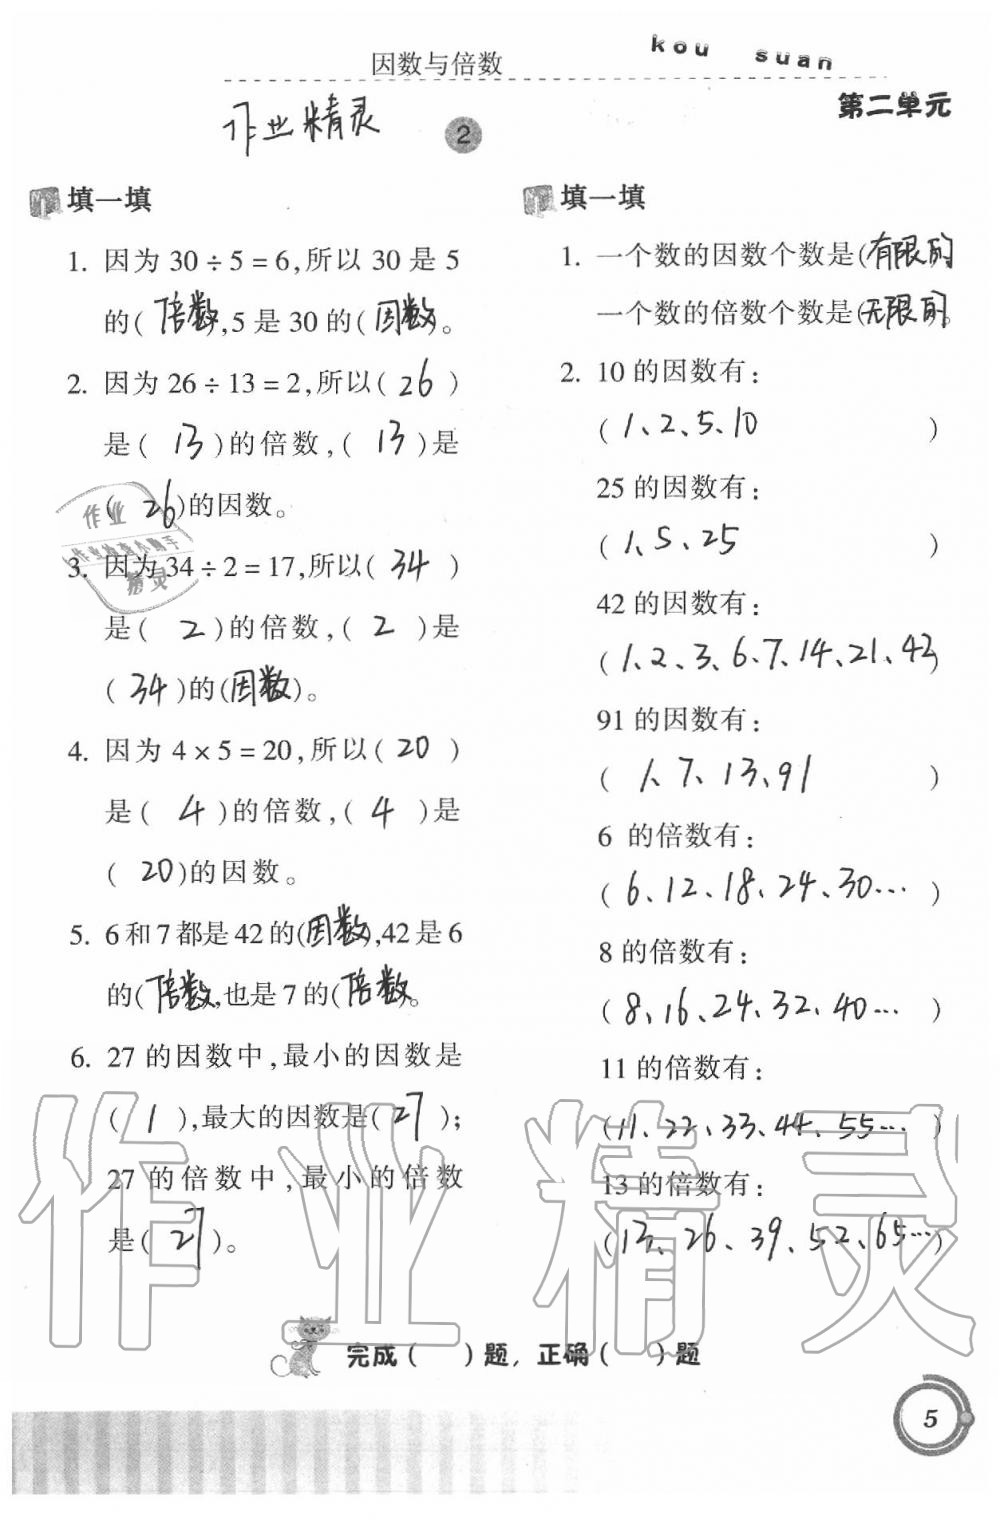 因数与倍数
kou suan
第二单元
作业精灵
2
填一填
1. 因为30÷5=6,所以30是5
的(倍数),5是30的(因数)。
2. 因为26÷13=2,所以(26)
是(13)的倍数,(13)是
(26)的因数。
3. 因为34÷2=17,所以(34)
是(2)的倍数,(2)是
(34)的(因数)。
4. 因为4×5=20,所以(20)
是(4)的倍数,(4)是
(20)的因数。
5. 6和7都是42的(因数),42是6
的(倍数),也是7的(倍数)。
6. 27的因数中,最小的因数是
(1),最大的因数是(27);
27的倍数中,最小的倍数
是(27)。
填一填
1. 一个数的因数个数是(有限的)
一个数的倍数个数是(无限的)。
2. 10的因数有:
(1、2、5、10)
25的因数有:
(1、5、25)
42的因数有:
(1、2、3、6、7、14、21、42)
91的因数有:
(1、7、13、91)
6 的倍数有:
(6、12、18、24、30…)
8的倍数有:
(8、16、24、32、40…)
11的倍数有:
(11、22、33、44、55…)
13的倍数有:
(13、26、39、52、65…)
完成( )题,正确( )题
5
作业
作业检查小助手
精灵
作业精灵